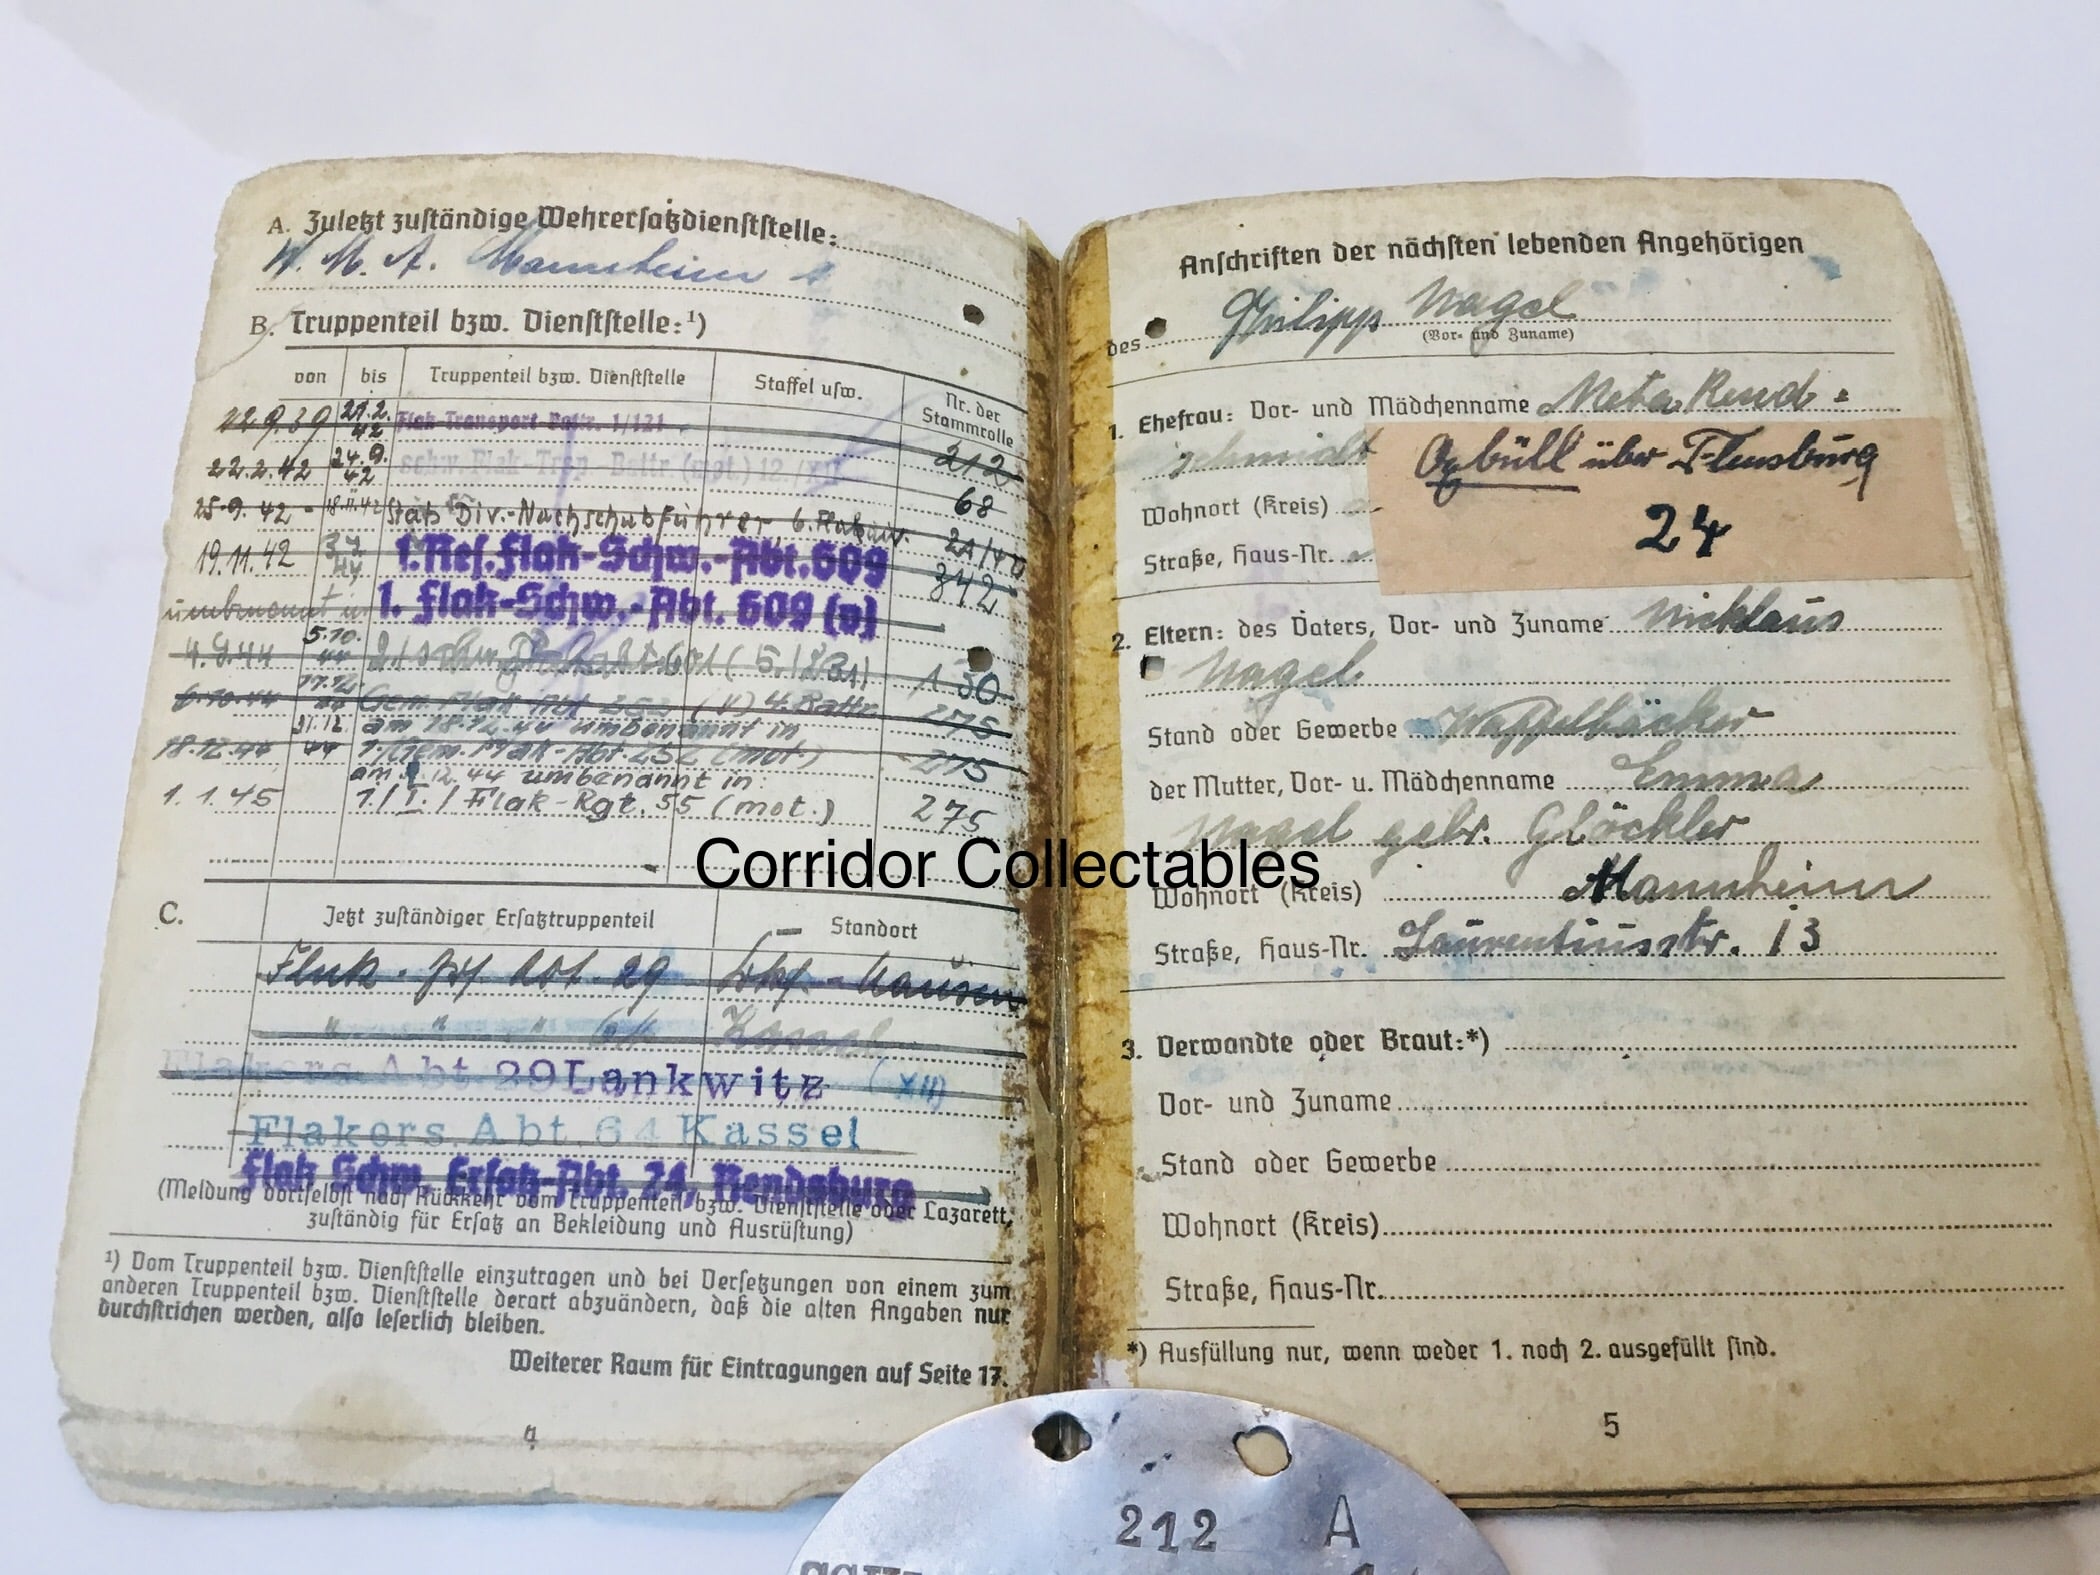 A. Zuletzt zuständige Wehrersatzdienststelle:
W. M. A. Mannheim 1
B. Truppenteil bzw. Dienststelle:¹)
von bis Truppenteil bzw. Dienststelle Staffel usw. Nr. der Stammrolle
22.9.39 21.2.42 Flak-Transport-Battr. 1/121 212
22.2.42 24.9.42 schw. Flak-Trsp.-Battr. (mot.) 12./XII 68
25.9.42 - 18.11.42 Stab Div.-Nachschubführer, 6. 21/40
19.11.42 1. Res. Flak-Schw.-Abt. 609 342
umbenannt in 1. Flak-Schw.-Abt. 609 (v)
4.9.44 5.10.44 130
6.10.44 17.12.44 Gem. Flak Abt 252 (v) 4. Battr. 275
am 18.12.44 umbenannt in
18.12.44 31.12.44 1./Gem. Flak-Abt. 252 (mot.) 275
am 12.44 umbenannt in:
1.1.45 1./I./Flak-Rgt. 55 (mot.) 275
Corridor Collectables
C. Jetzt zuständiger Ersatztruppenteil Standort
Flak-
" " " 64 Kassel
Flakers.Abt.29 Lankwitz (XIII)
Flakers.Abt.64 Kassel
Flak Schw. Ersatz-Abt. 24, Rendsburg
(Meldung dortselbst nach Rückkehr vom Truppenteil bzw. Dienststelle oder Lazarett,
zuständig für Ersatz an Bekleidung und Ausrüstung)
¹) Vom Truppenteil bzw. Dienststelle einzutragen und bei Versetzungen von einem zum
anderen Truppenteil bzw. Dienststelle derart abzuändern, daß die alten Angaben nur
durchstrichen werden, also leserlich bleiben.
Weiterer Raum für Eintragungen auf Seite 17.
4
Anschriften der nächsten lebenden Angehörigen
des Philipp Nagel
(Vor- und Zuname)
1. Ehefrau: Vor- und Mädchenname Meta Rend-
schmidt
Oxbüll über Flensburg
Wohnort (Kreis)
24
Straße, Haus-Nr.
2. Eltern: des Vaters, Vor- und Zuname Nicklaus
Nagel
Stand oder Gewerbe Waffelbäcker
der Mutter, Vor- u. Mädchenname Emma
Nagel gebr. Glöckler
Wohnort (Kreis) Mannheim
Straße, Haus-Nr. Laurentiusstr. 13
3. Verwandte oder Braut:*)
Vor- und Zuname
Stand oder Gewerbe
Wohnort (Kreis)
Straße, Haus-Nr.
*) Ausfüllung nur, wenn weder 1. noch 2. ausgefüllt sind.
5
212 A